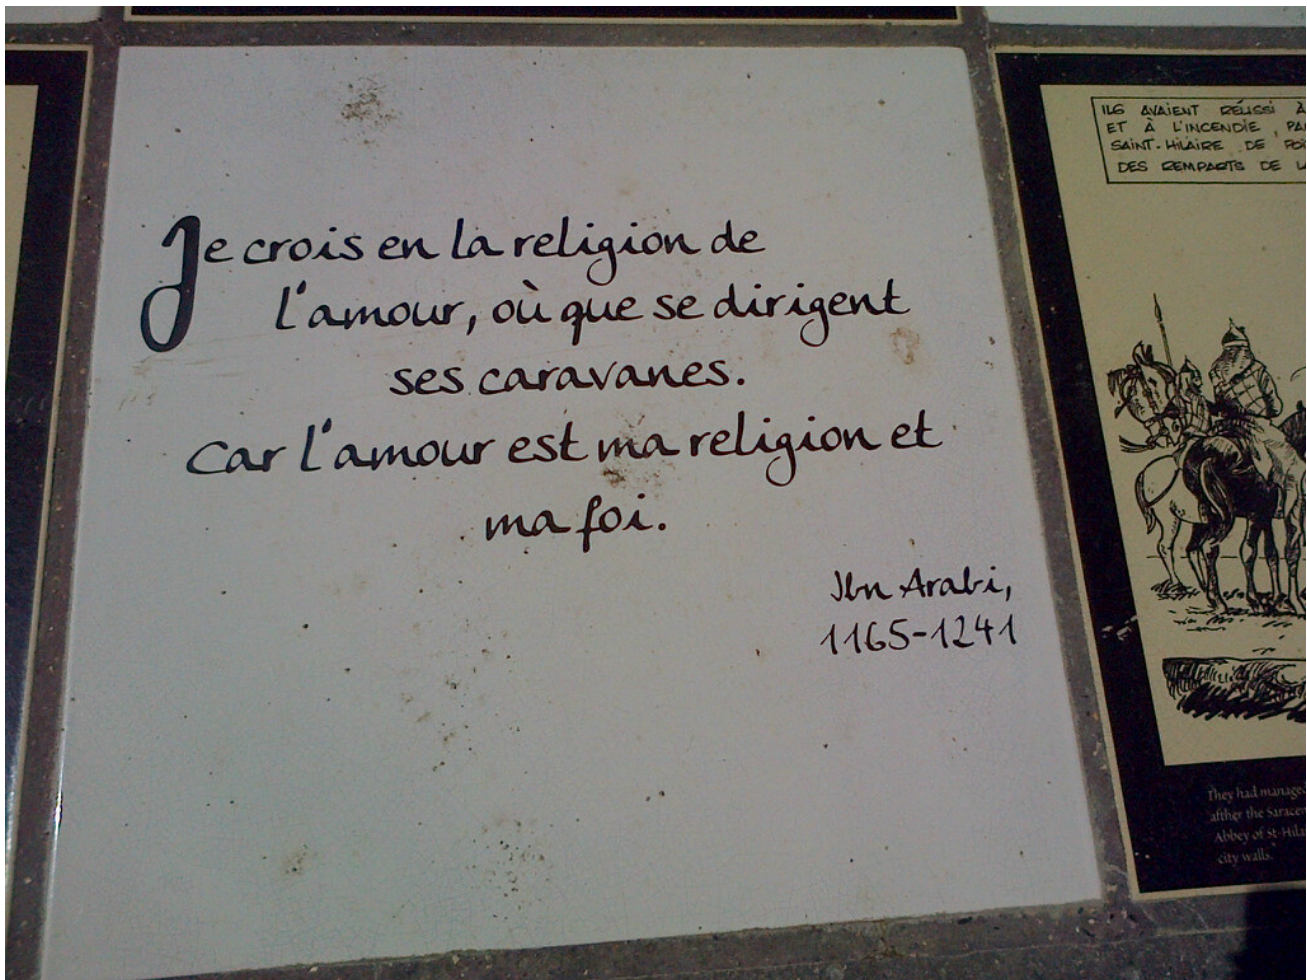 Je crois en la religion de
l'amour, où que se dirigent
ses caravanes.
Car l'amour est ma religion et
ma foi.
Ibn Arabi,
1165-1241
ILS AVAIENT RÉUSSI À
ET À L'INCENDIE,
SAINT-HILAIRE DE
DES REMPARTS DE
They had managed
afther the
Abbey of
city walls.